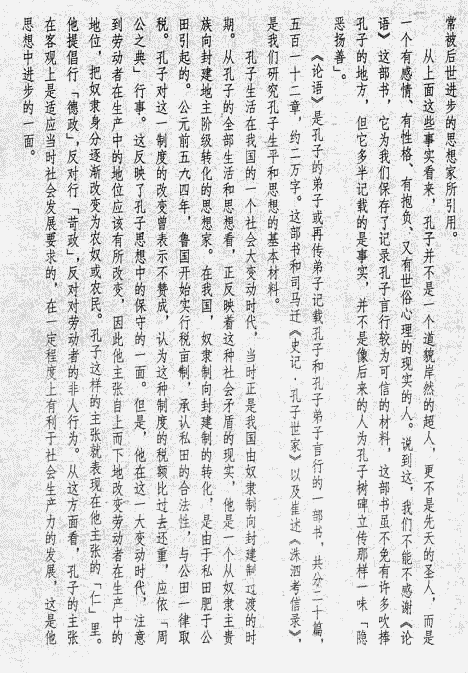 常被后世进步的思想家所引用。
从上面这些事实看来，孔子并不是一个道貌岸然的超人，更不是先天的圣人，而是
一个有感情、有性格、有抱负、又有世俗心理的现实的人。说到这，我们不能不感谢《论
语》这部书，它为我们保存了记录孔子言行较为可信的材料，这部书虽不免有许多吹捧
孔子的地方，但它多半记载的是事实，并不是像后来的人为孔子树碑立传那样一味「隐
恶扬善」。
《论语》是孔子的弟子或再传弟子记载孔子和孔子弟子言行的一部书，共分二十篇，
五百一十二章，约二万字。这部书和司马迁《史记·孔子世家》以及崔述《洙泗考信录》，
是我们研究孔子生平和思想的基本材料。
孔子生活在我国的一个社会大变动时代，当时正是我国由奴隶制向封建制过渡的时
期。从孔子的全部生活和思想看，正反映着这种社会矛盾的现实，他是一个从奴隶主贵
族向封建地主阶级转化的思想家。在我国，奴隶制向封建制的转化，是由于私田肥于公
田引起的。公元前五九四年，鲁国开始实行税亩制，承认私田的合法性，与公田一律取
税。孔子对这一制度的改变曾表示不赞成，认为这种制度的税额比过去还重，应依「周
公之典」行事。这反映了孔子思想中的保守的一面。但是，他在这一大变动时代，注意
到劳动者在生产中的地位应该有所改变，因此他主张自上而下地改变劳动者在生产中的
地位，把奴隶身分逐渐改变为农奴或农民。孔子这样的主张就表现在他主张的「仁」里。
他提倡行「德政」，反对行「苛政」，反对对劳动者的非人行为。从这方面看，孔子的主张
在客观上是适应当时社会发展要求的，在一定程度上有利于社会生产力的发展，这是他
思想中进步的一面。